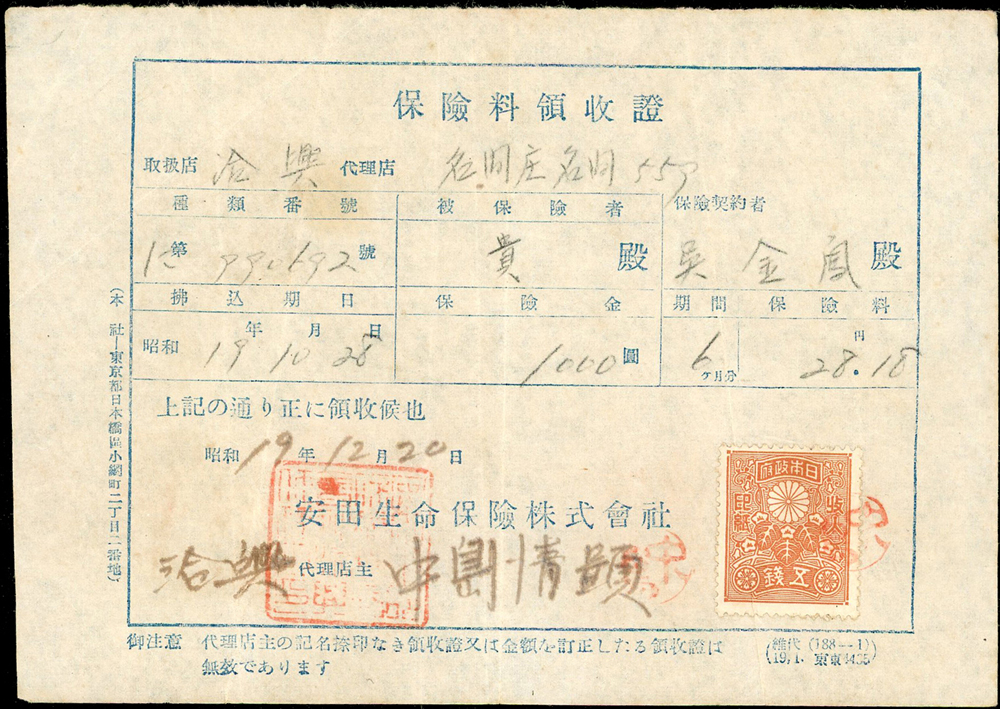 保險料領收證
取扱店 治興 代理店 名間庄名間 559
種類番號 被保險者 保險契約者
第 990692 號 貴殿 吳金鳳殿
拂込期日 保險金 期間 保險料
昭和 19年 10月 28日 1000圓 6ヶ月分 28円.18
上記の通り正に領收候也
昭和 19年 12月 20日
安田生命保險株式會社
治興 代理店主 中島情顕
日本政府
收入印紙
五錢
御注意 代理店主の記名捺印なき領收證又は金額を訂正したる領收證は
無效であります
(雜代 (188--1)
19,1. 東東4435)
(本社—東京都日本橋區小網町二丁目二番地)